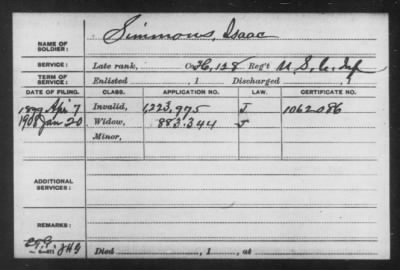 Simmons, Isaac
NAME OF SOLDIER:
SERVICE: Late rank, Co. H, 128 Reg't U.S.C. Inf
TERM OF SERVICE: Enlisted , 1 Discharged , 1
DATE OF FILING. CLASS. APPLICATION NO. LAW. CERTIFICATE NO.
1899 Apr 7 Invalid, 1,223,975 J 1062086
1908 Jan 20 Widow, 883.344 J
Minor,
ADDITIONAL SERVICES:
REMARKS:
Died , 1 , at